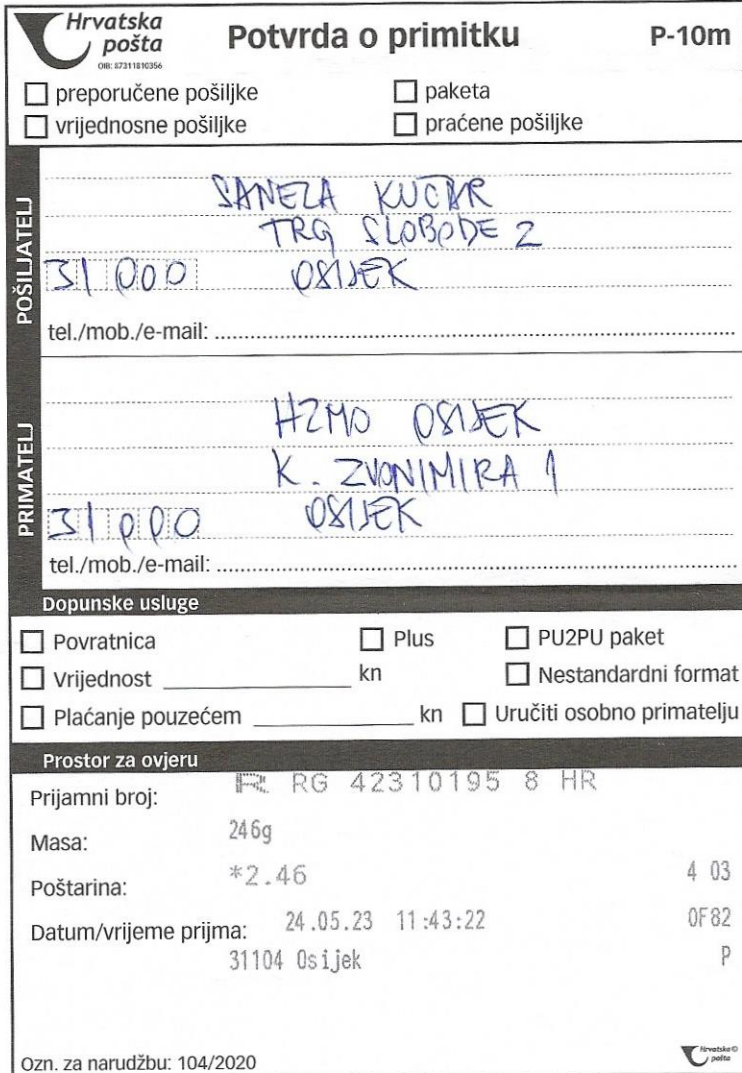 Hrvatska
pošta
OIB: 87311810356
Potvrda o primitku
P-10m
preporučene pošiljke
paketa
vrijednosne pošiljke
praćene pošiljke
POŠILJATELJ
SANELA KUČAR
TRG SLOBODE 2
31 000 OSIJEK
tel./mob./e-mail:
PRIMATELJ
HZMO OSIJEK
K. ZVONIMIRA 1
31 000 OSIJEK
tel./mob./e-mail:
Dopunske usluge
Povratnica
Plus
PU2PU paket
Vrijednost kn
Nestandardni format
Plaćanje pouzećem kn
Uručiti osobno primatelju
Prostor za ovjeru
Prijamni broj: R RG 42310195 8 HR
Masa: 246g
Poštarina: *2.46 4 03
Datum/vrijeme prijma: 24.05.23 11:43:22 0F82
31104 Osijek P
Ozn. za narudžbu: 104/2020
Hrvatska
pošta